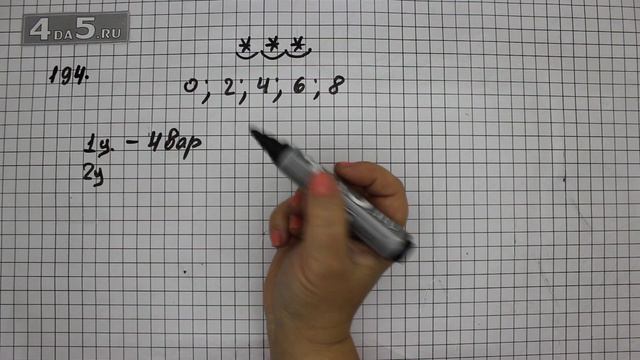 4 DA 5.RU
* * *
194.
0; 2; 4; 6; 8
1ц. - 4 вар
2ц